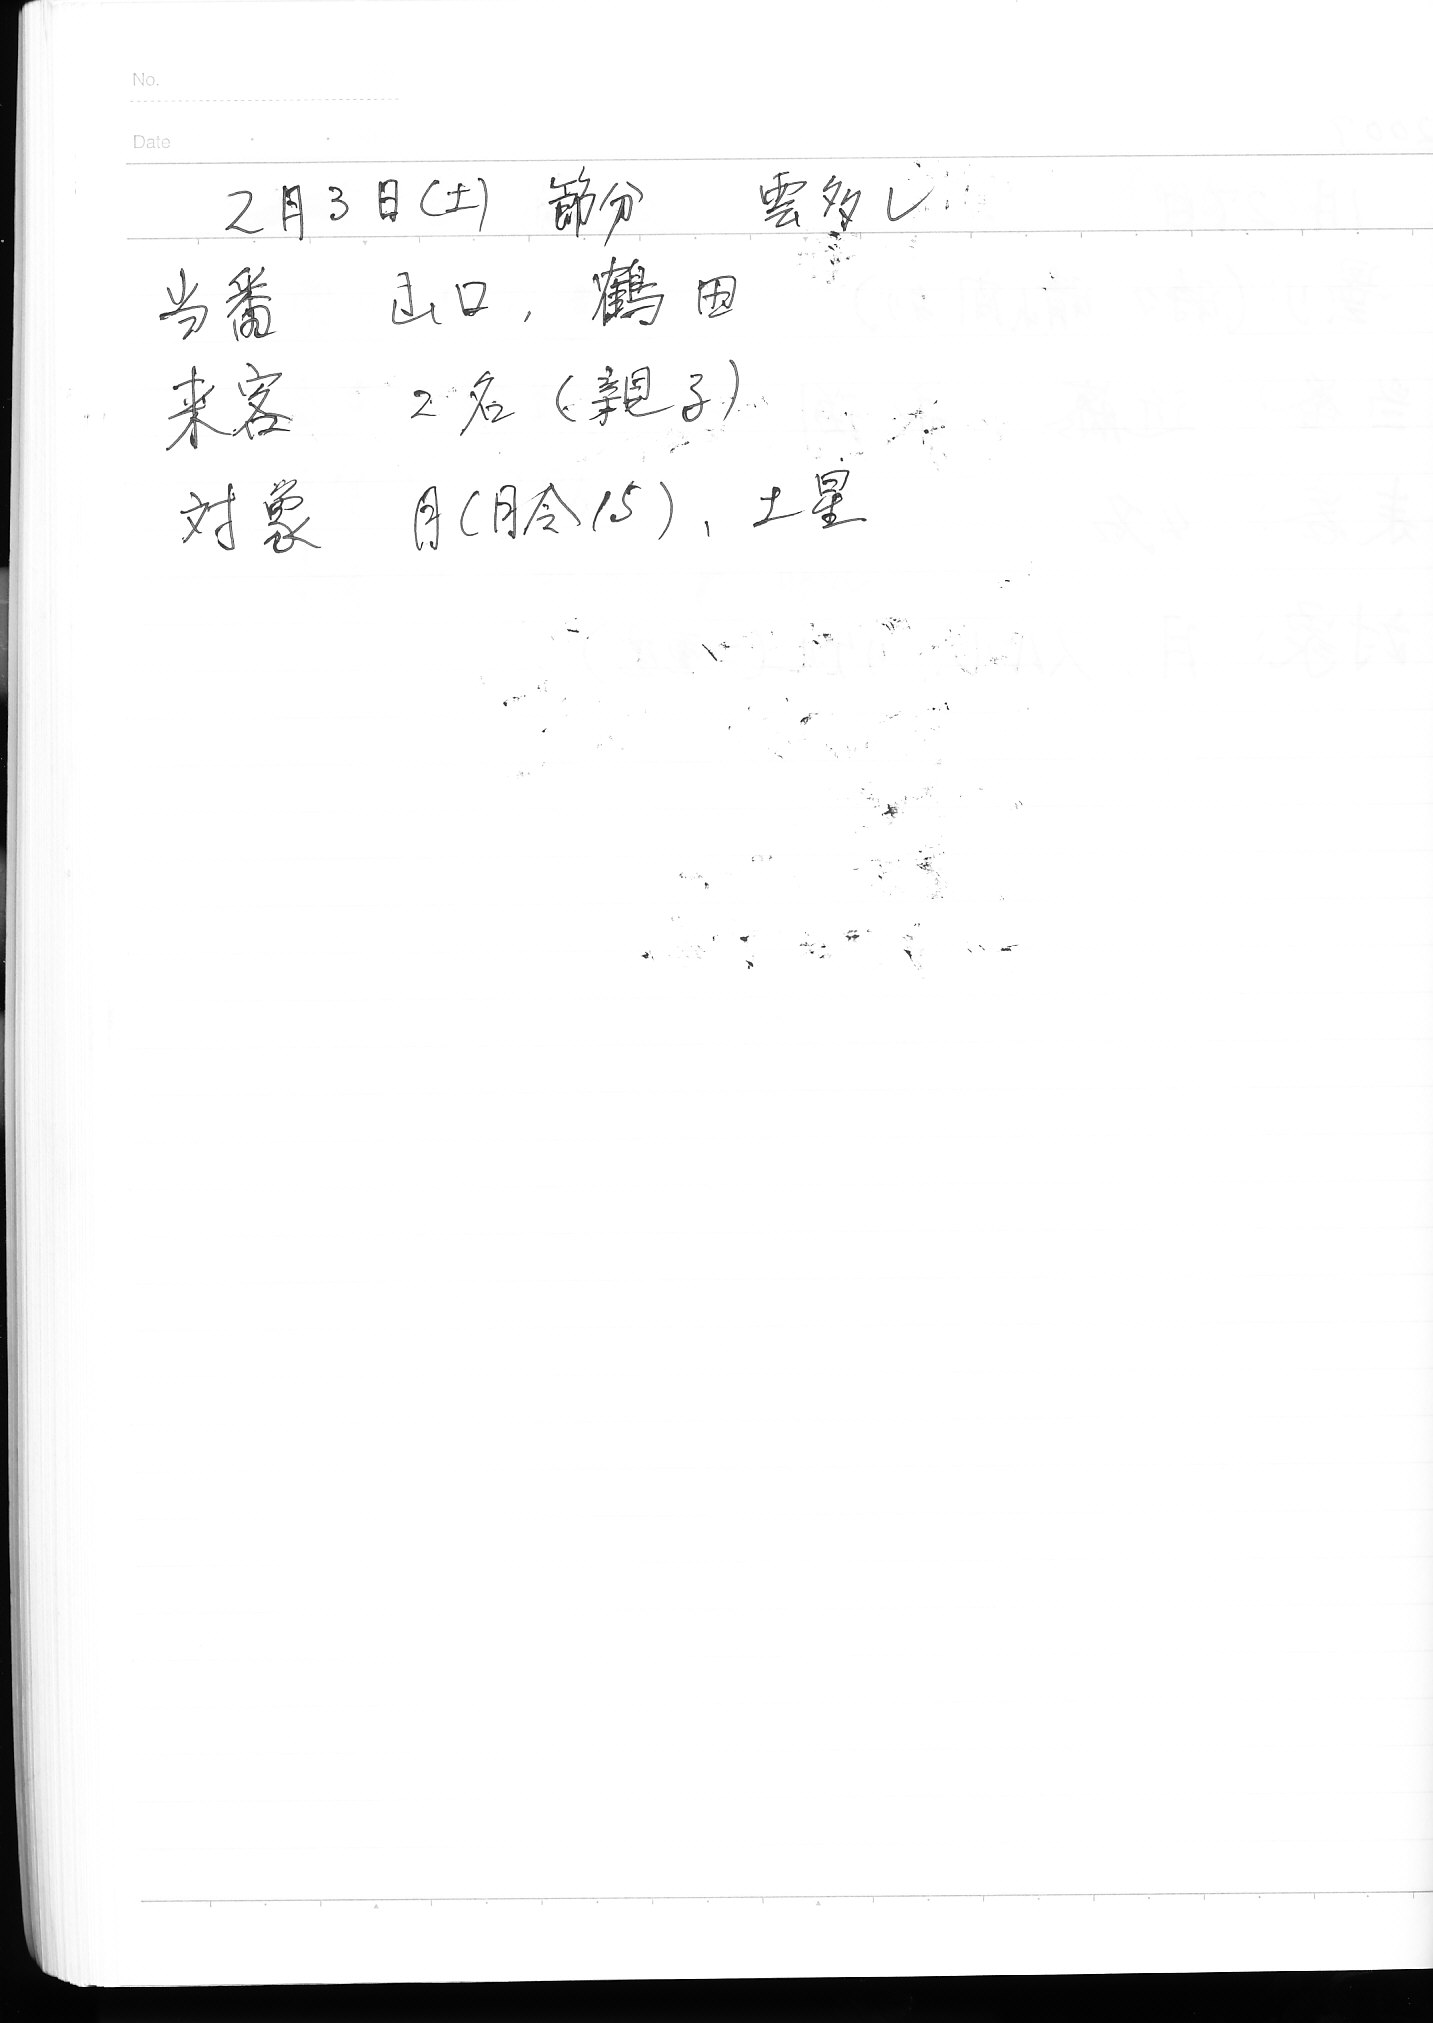 No.
Date
2月3日(土) 節分 雲多し
当番 山口, 鶴田
来客 2名(親子)
対象 月(月令15)、土星